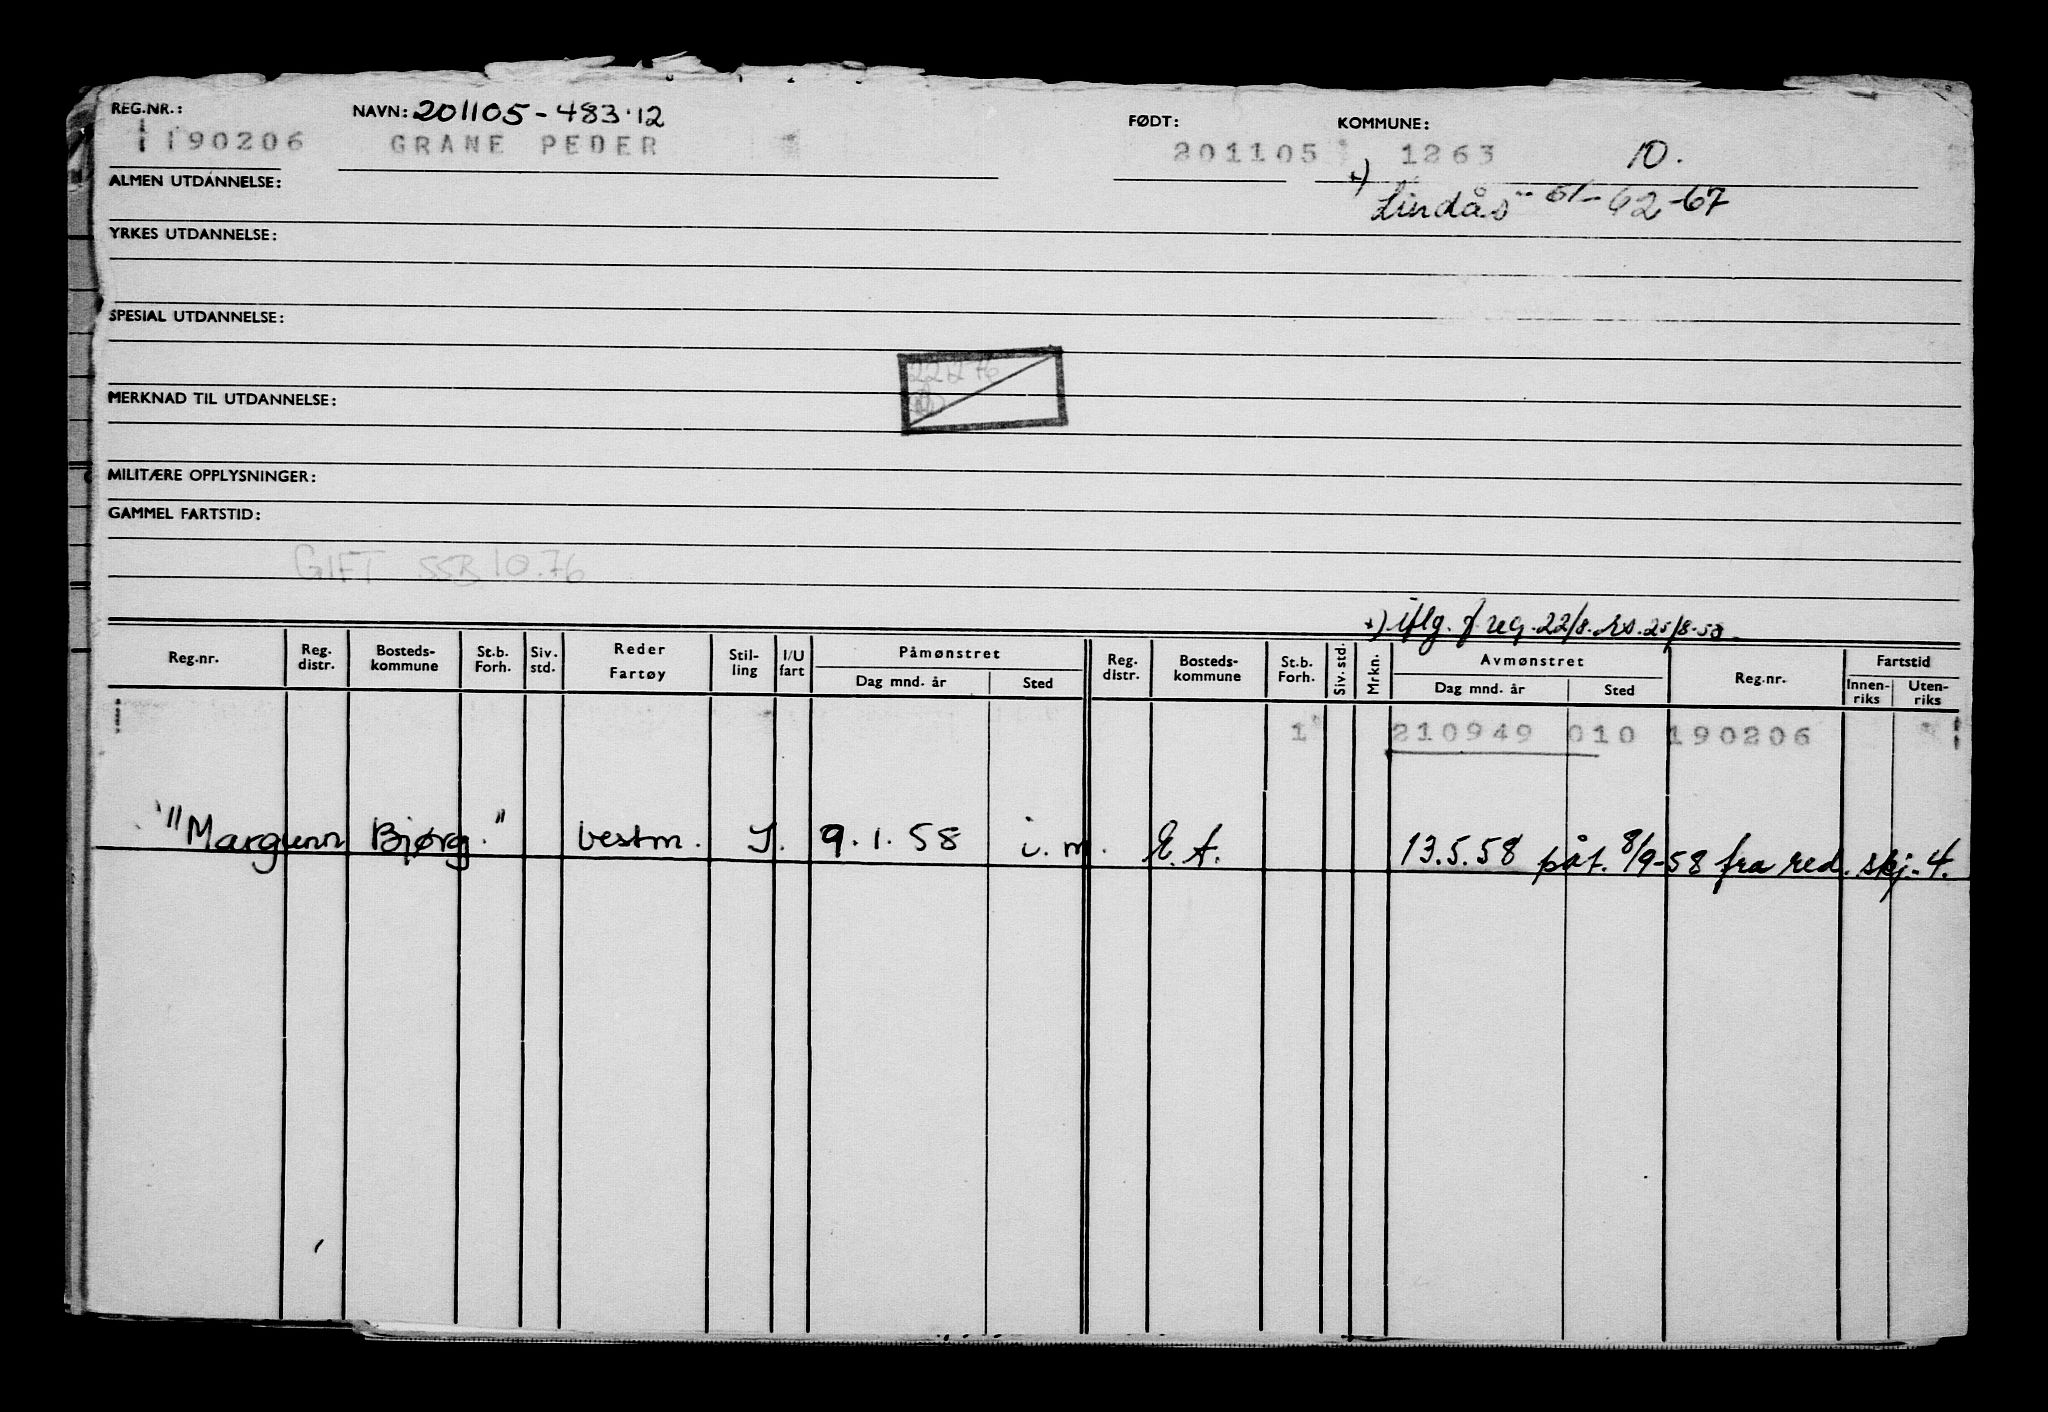 REG.NR.: NAVN: 201105-483.12 FØDT: KOMMUNE:
190206 GRANE PEDER 201105 1263 10.
ALMEN UTDANNELSE: *) Lindås 61-62-67
YRKES UTDANNELSE:
SPESIAL UTDANNELSE:
MERKNAD TIL UTDANNELSE:
MILITÆRE OPPLYSNINGER:
GAMMEL FARTSTID:
GIFT SSB 10.76
*) iflg. reg. 22/8. 25/8-58
Reg.nr. Reg. distr. Bosteds-kommune St.b. Forh. Siv. std. Reder Fartøy Stil-ling I/U fart Påmønstret Dag mnd. år Sted Reg. distr. Bosteds-kommune St.b. Forh. Siv. std. Mrkn. Avmønstret Dag mnd. år Sted Reg.nr. Fartstid Innen-riks Uten-riks
1 210949 010 190206
"Margunn Bjørg." vestm. J. 9.1.58 i.m. E.A. 13.5.58 påt. 8/9-58 fra red. skj. 4.